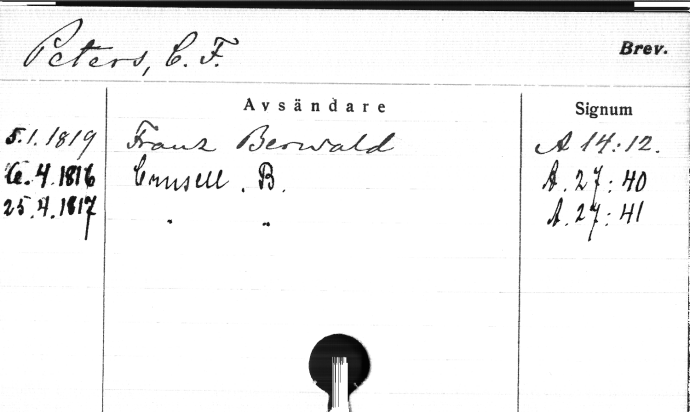 Peters, C. F.
Brev.
Avsändare
Signum
5.1.1819 Franz Berwald A 14:12.
4.1816 Crusell. B. A. 27:40
25.4.1817 " " A. 27:41